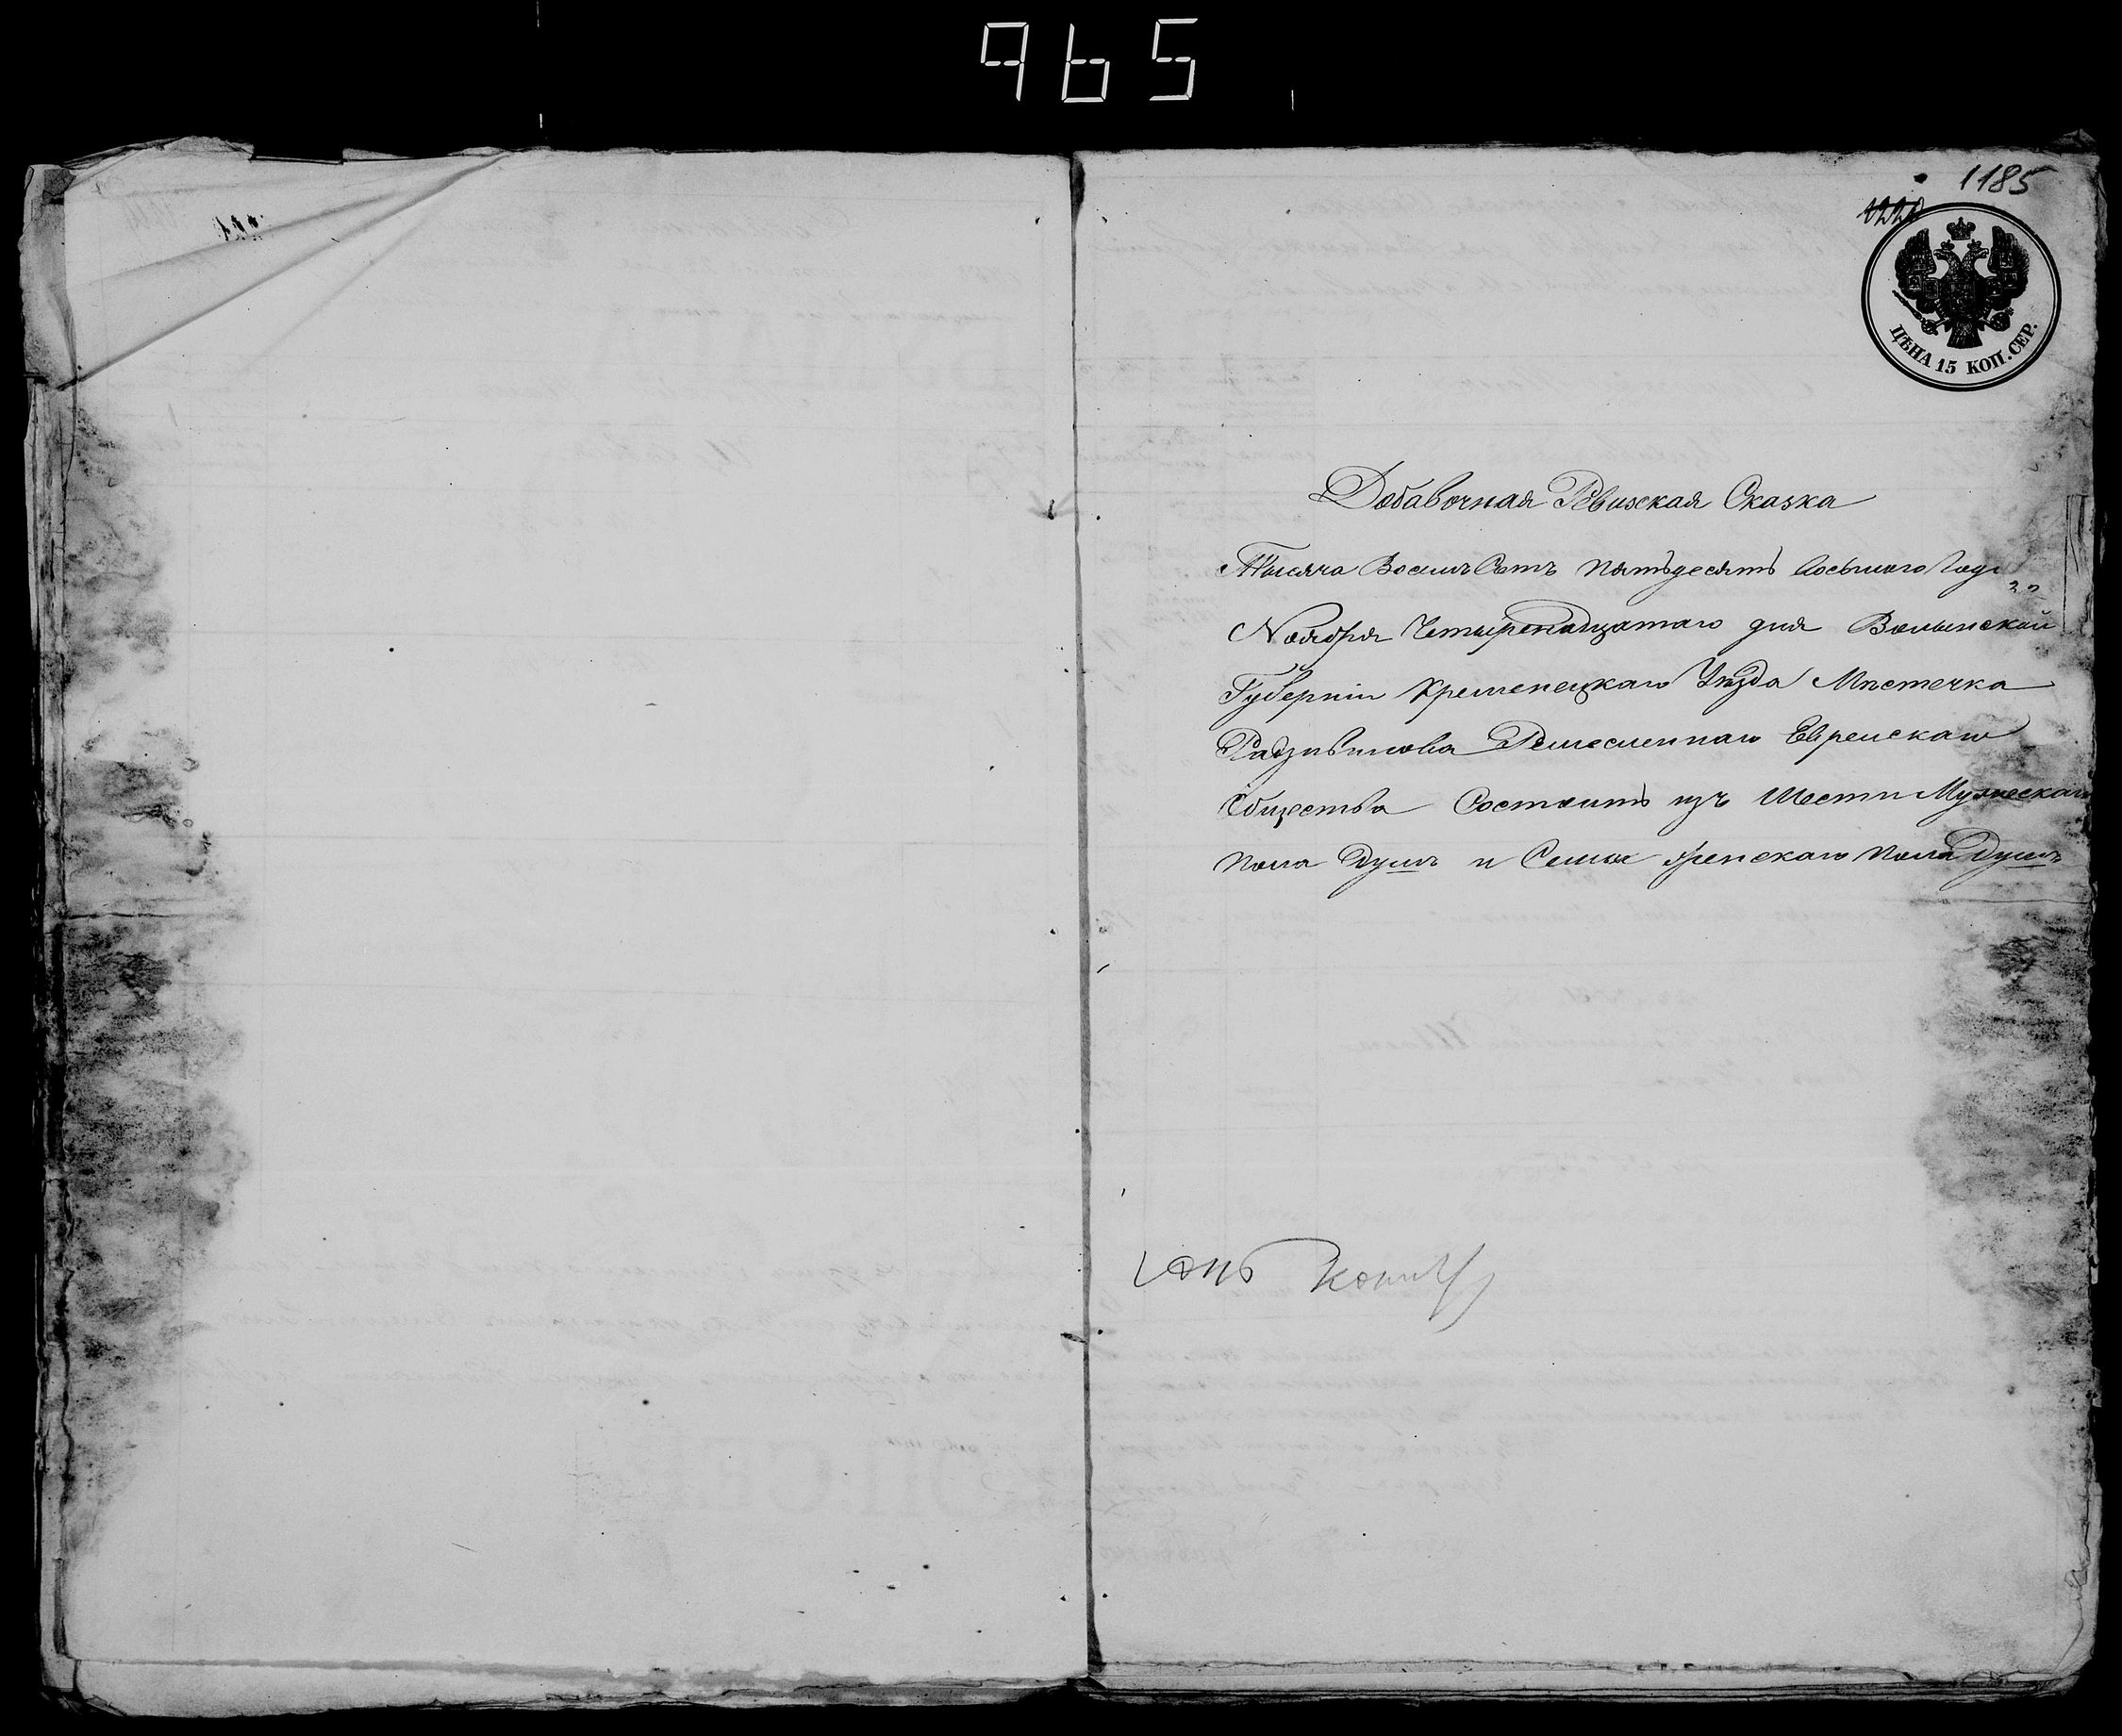 965
1185
1220
ЦѢНА 15 КОП. СЕР.
Добавочная Ревизская Сказка
Тысяча Восемь Сотъ пятьдесятъ Восьмого Года
Ноября Четыренадцатаго дня Волынской
Губерніи Кременецкаго Уѣзда Мѣстечка
Радзивилова Ремесленнаго Еврейскаго
Общества Состоитъ изъ Шести Мужескаго
пола Душъ и Семи женскаго пола Душъ